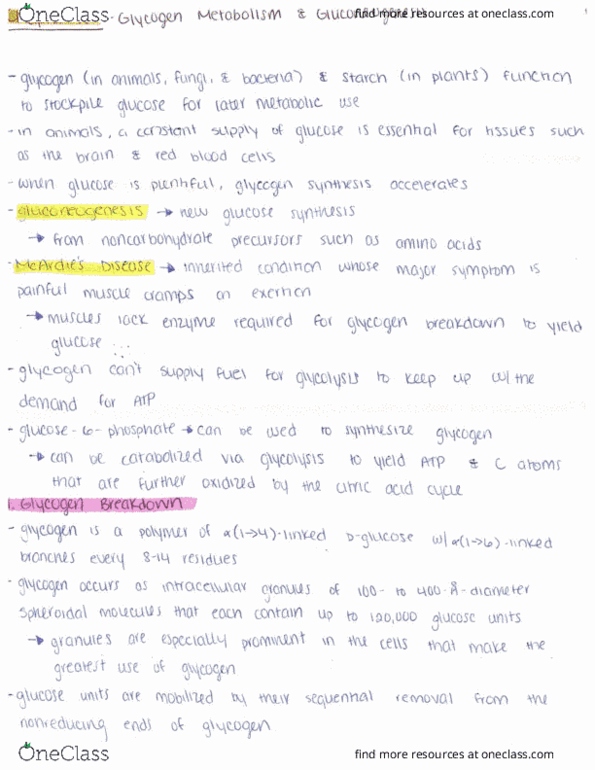 OneClass
Glycogen Metabolism & Gluconeogenesis
find more resources at oneclass.com
- glycogen (in animals, fungi, & bacteria) & starch (in plants) function
to stockpile glucose for later metabolic use
- in animals, a constant supply of glucose is essential for tissues such
as the brain & red blood cells
- when glucose is plentiful, glycogen synthesis accelerates
- gluconeogenesis → new glucose synthesis
→ from noncarbohydrate precursors such as amino acids
- McArdle's Disease → inherited condition whose major symptom is
painful muscle cramps on exertion
→ muscles lack enzyme required for glycogen breakdown to yield
glucose ∴
- glycogen can't supply fuel for glycolysis to keep up w/ the
demand for ATP
- glucose-6-phosphate → can be used to synthesize glycogen
→ can be catabolized via glycolysis to yield ATP & C atoms
that are further oxidized by the citric acid cycle
1. Glycogen Breakdown
- glycogen is a polymer of α(1→4)-linked D-glucose w/ α(1→6)-linked
branches every 8-14 residues
- glycogen occurs as intracellular granules of 100- to 400-Å-diameter
spheroidal molecules that each contain up to 120,000 glucose units
→ granules are especially prominent in the cells that make the
greatest use of glycogen
- glucose units are mobilized by their sequential removal from the
nonreducing ends of glycogen
OneClass
find more resources at oneclass.com